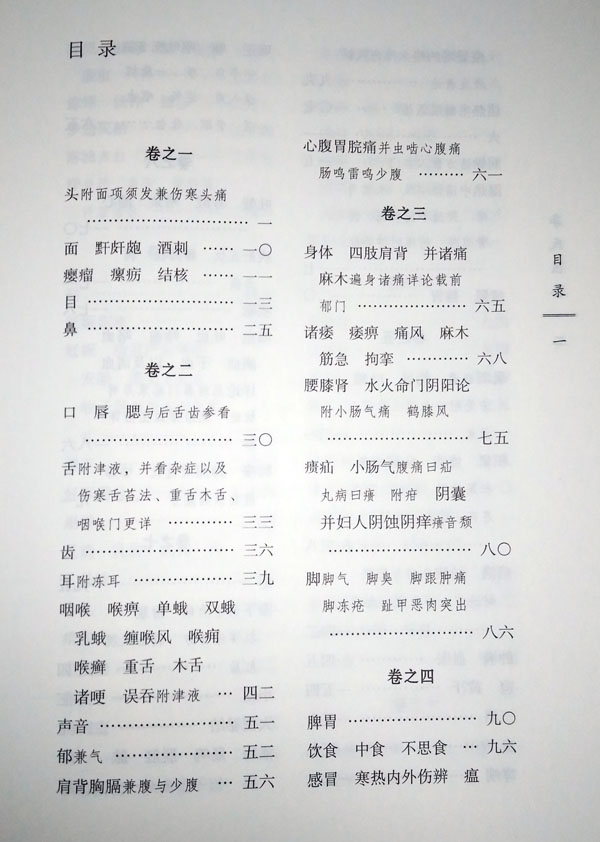 目录
卷之一
头附面项须发兼伤寒头痛
……………………… 一
面 黚皯皰 酒刺 …… 一〇
瘿瘤 瘰疬 结核 …… 一一
目 ………………… 一三
鼻 ………………… 二五
卷之二
口 唇 腮与后舌齿参看
……………………… 三〇
舌附津液，并看杂症以及
伤寒舌苔法、重舌木舌、
咽喉门更详 ………… 三三
齿 ………………… 三六
耳附冻耳 ……………… 三九
咽喉 喉痹 单蛾 双蛾
乳蛾 缠喉风 喉痈
喉癣 重舌 木舌
诸哽 误吞附津液 … 四二
声音 ……………… 五一
郁兼气 ……………… 五二
肩背胸膈兼腹与少腹 … 五六
心腹胃脘痛并虫啮心腹痛
肠鸣雷鸣少腹 ……… 六一
卷之三
身体 四肢肩背 并诸痛
麻木遍身诸痛详论载前
郁门 …………… 六五
诸痿 痿痹 痛风 麻木
筋急 拘挛 ………… 六八
腰膝肾 水火命门阴阳论
附小肠气痛 鹤膝风
……………………… 七五
㿉疝 小肠气腹痛曰疝
丸病曰㿉 附疳 阴囊
并妇人阴蚀阴痒㿉音颓
……………………… 八〇
脚脚气 脚臭 脚跟肿痛
脚冻疮 趾甲恶肉突出
……………………… 八六
卷之四
脾胃 ……………… 九〇
饮食 中食 不思食 … 九六
感冒 寒热内外伤辨 瘟
目录
一